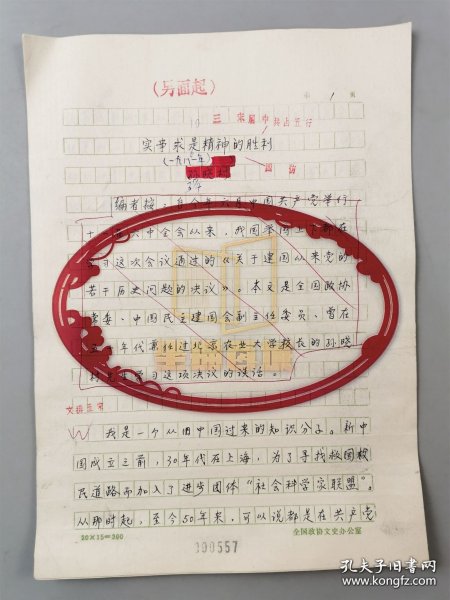 (另面起)
三 宋扁中共占五行
实事求是精神的胜利
(一九八一年)
孙晓村
编者按:自今年六月中国共产党举行
十一届六中全会以来,我国举国上下都在
学习这次会议通过的《关于建国以来党的
若干历史问题的决议》。本文是全国政协
常委、中国民主建国会副主任委员、曾在
五十年代担任过北京农业大学校长的孙晓
村学习这项决议的谈话。
我是一个从旧中国过来的知识分子。新中
国成立之前,30年代在上海,为了寻找救国救
民道路而加入了进步团体“社会科学家联盟”。
从那时起,至今50年来,可以说都是在共产党
20×15=300
全国政协文史办公室
000557
孔夫子旧书网